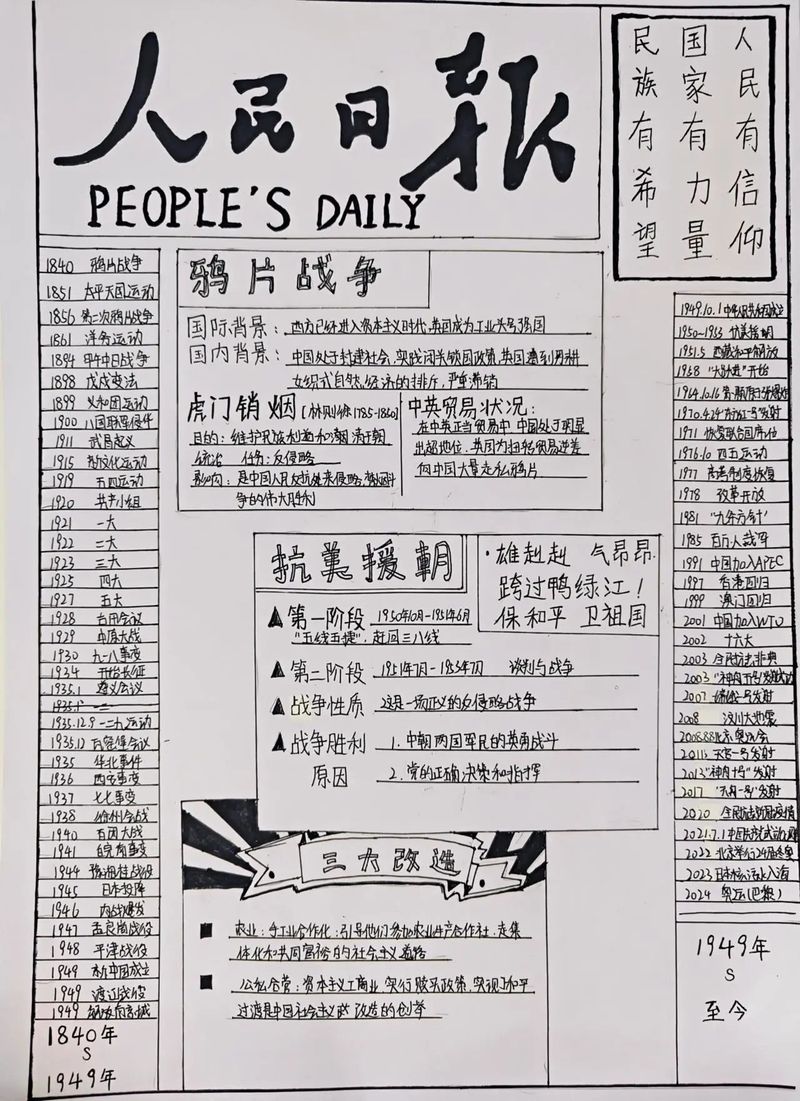 人民日报
PEOPLE'S DAILY
人民有信仰
国家有力量
民族有希望
1840 鸦片战争
1851 太平天国运动
1856 第二次鸦片战争
1861 洋务运动
1894 甲午中日战争
1898 戊戌变法
1899 义和团运动
1900 八国联军侵华
1911 武昌起义
1915 新文化运动
1919 五四运动
1920 共产小组
1921 一大
1922 二大
1923 三大
1925 四大
1927 五大
1928 古田会议
1929 中原大战
1930 九一八事变
1934 开始长征
1935.1 遵义会议
1935.12.9 一二九运动
1935.12 瓦窑堡会议
1935 华北事件
1936 西安事变
1937 七七事变
1938 徐州会战
1940 百团大战
1941 皖南事变
1944 豫湘桂战役
1945 日本投降
1946 内战爆发
1947 孟良崮战役
1948 平津战役
1949 新中国成立
1949 渡江战役
1949
1840年
S
1949年
鸦片战争
国际背景：西方已经进入资本主义时代,英国成为工业头号强国
国内背景：中国处于封建社会,实践闭关锁国政策,英国遭到男耕
女织式自然经济的排斥,严重滞销
虎门销烟 [林则徐 1785-1850]
目的：维护民族利益和清朝
统治 任务：反侵略
影响：是中国人民反抗外来侵略
争的伟大胜利
中英贸易状况：
在中英正当贸易中,中国处于明显
出超地位,英国为扭转贸易逆差
向中国大量走私鸦片
抗美援朝
·雄赳赳 气昂昂
跨过鸭绿江！
保和平 卫祖国
第一阶段 1950年10月-1951年6月
"五战五捷",赶回三八线
第二阶段 1951年7月-1953年7月 谈判与战争
战争性质 这是一场正义的反侵略战争
战争胜利 1.中朝两国军民的英勇战斗
原因 2.党的正确决策和指挥
三大改造
农业：手工业合作化：引导他们参加农业生产合作社,走集
体化和共同富裕的社会主义道路
公私合营：资本主义工商业,实行赎买政策,实现了和平
过渡是中国社会主义改造的创举
1949.10.1 中华人民共和国成立
1950~1953 抗美援朝
1951.5 西藏和平解放
1958 "大跃进"开始
1964.10.16
1970.4.24 东方红一号发射
1971 恢复联合国席位
1976.10 四五运动
1977 高考制度恢复
1978 改革开放
1981 "九条方针"
1985 百万大裁军
1991 中国加入APEC
1997 香港回归
1999 澳门回归
2001 中国加入WTO
2002 十六大
2003 全民抗击非典
2003 "神舟五号"发射成功
2007 嫦娥一号发射
2008 汶川大地震
2008.8.8 北京奥运会
2011 天宫一号发射
2013 "神舟十号"发射
2017 "天舟一号"发射
2020 全民抗击新冠疫情
2021.7.1
2022 北京举行24届冬奥
2023 日本核污水入海
2024 奥运(巴黎)
1949年
S
至今